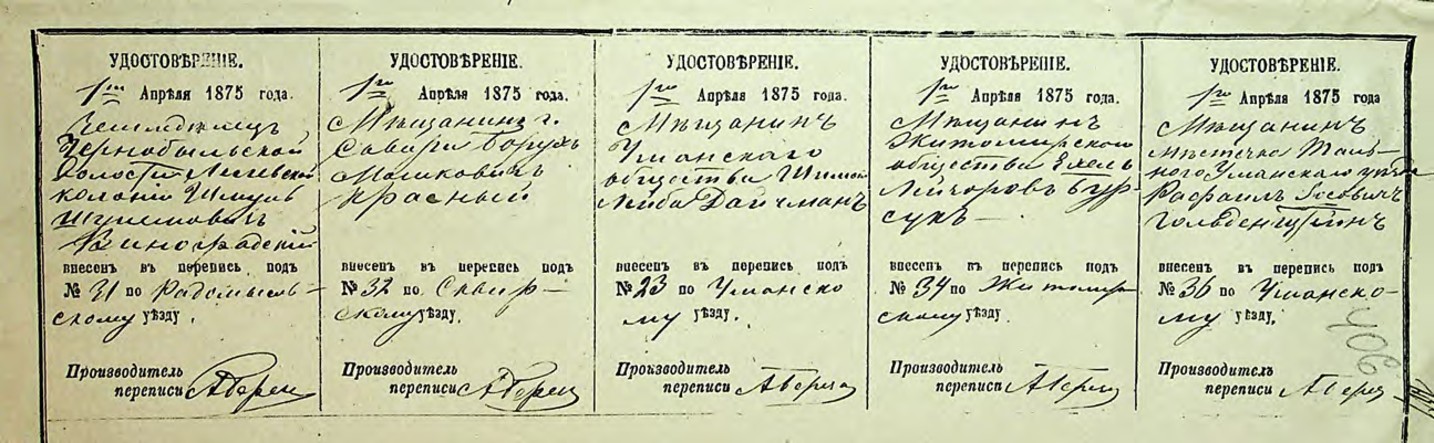 УДОСТОВѢРЕНІЕ.
1го Апрѣля 1875 года.
Земледѣлецъ
Чернобыльской
Волости
колоніи Шмуль
Виноградскій
внесенъ въ перепись подъ
№ 31 по Радомысль-
скому уѣзду.
Производитель
переписи
УДОСТОВѢРЕНІЕ.
1го Апрѣля 1875 года.
Мѣщанинъ г.
Сквиры Борухъ
Мошковичъ
Красный
внесенъ въ перепись подъ
№ 32 по Сквир-
скому уѣзду.
Производитель
переписи
УДОСТОВѢРЕНІЕ.
1го Апрѣля 1875 года.
Мѣщанинъ
Уманскаго
общества Шимон
Лейба Дайчманъ
внесенъ въ перепись подъ
№ 23 по Уманско
му уѣзду.
Производитель
переписи
УДОСТОВѢРЕНІЕ.
1го Апрѣля 1875 года.
Мѣщанинъ
Житомирскаго
общества Ехель
Бур-
сукъ
внесенъ въ перепись подъ
№ 34 по Житомир
скому уѣзду.
Производитель
переписи
УДОСТОВѢРЕНІЕ.
1го Апрѣля 1875 года
Мѣщанинъ
мѣстечка Таль-
ного Уманскаго уѣзда
Рафаилъ
внесенъ въ перепись подъ
№ 36 по Уманско-
му уѣзду.
Производитель
переписи
406